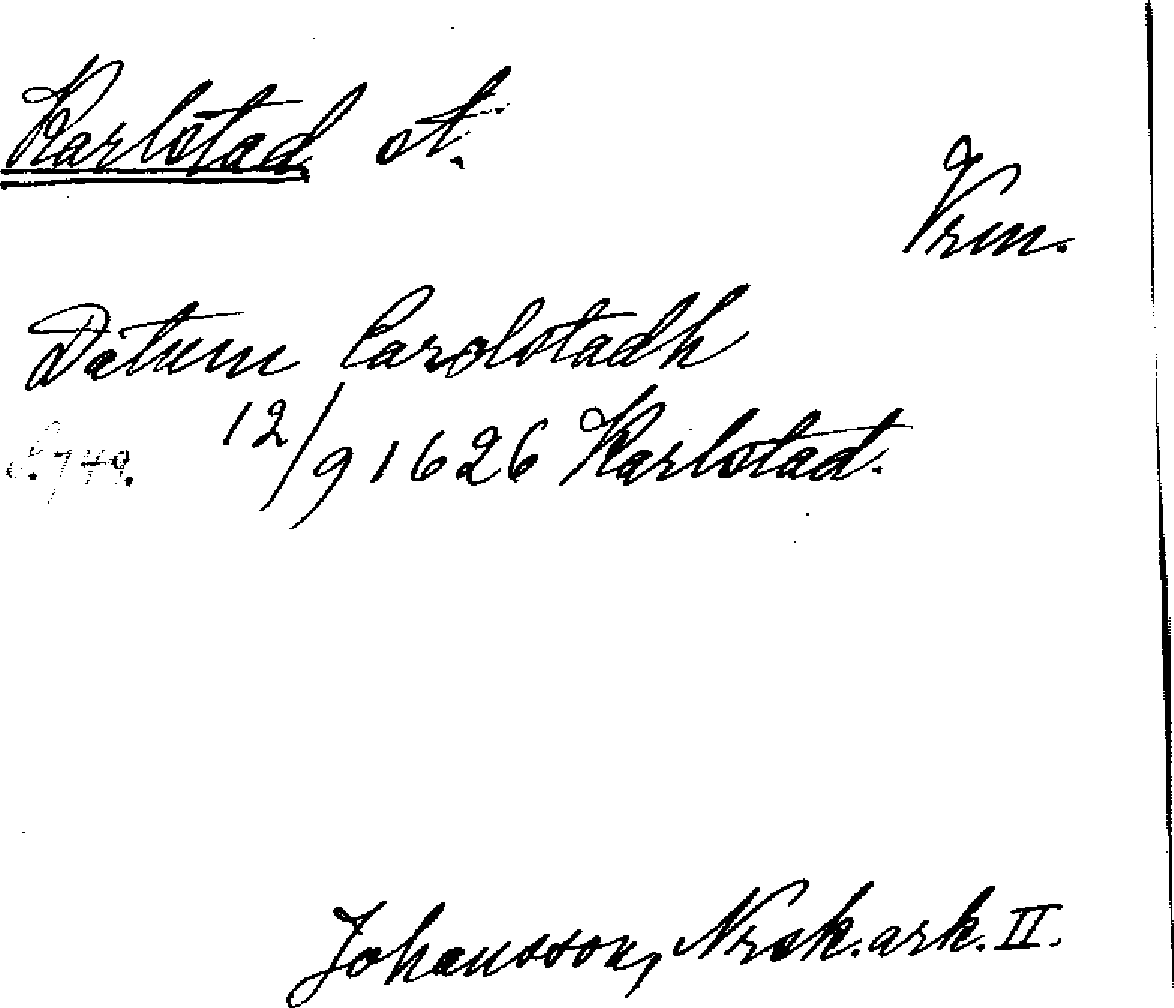 Karlstad st.
Vrm.
Datum Carolstadh
12/9 1626 Karlstad.
s. 749.
Johansson, Nrsk. ark. II.